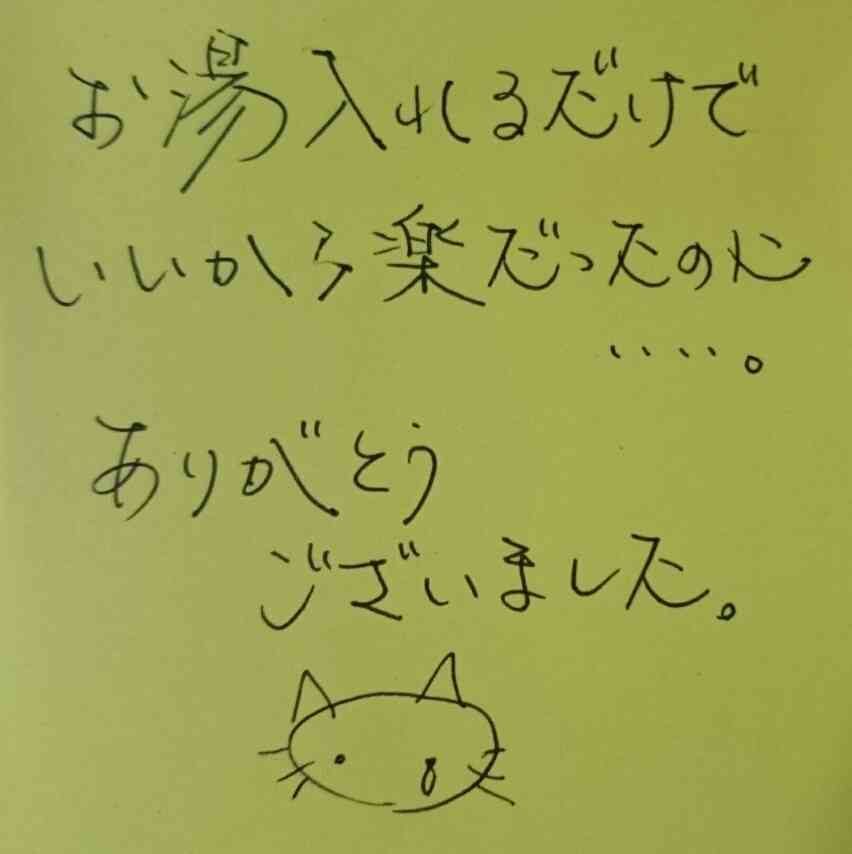 お湯入れるだけで
いいから楽だったのに
‥‥。
ありがとう
ございました。